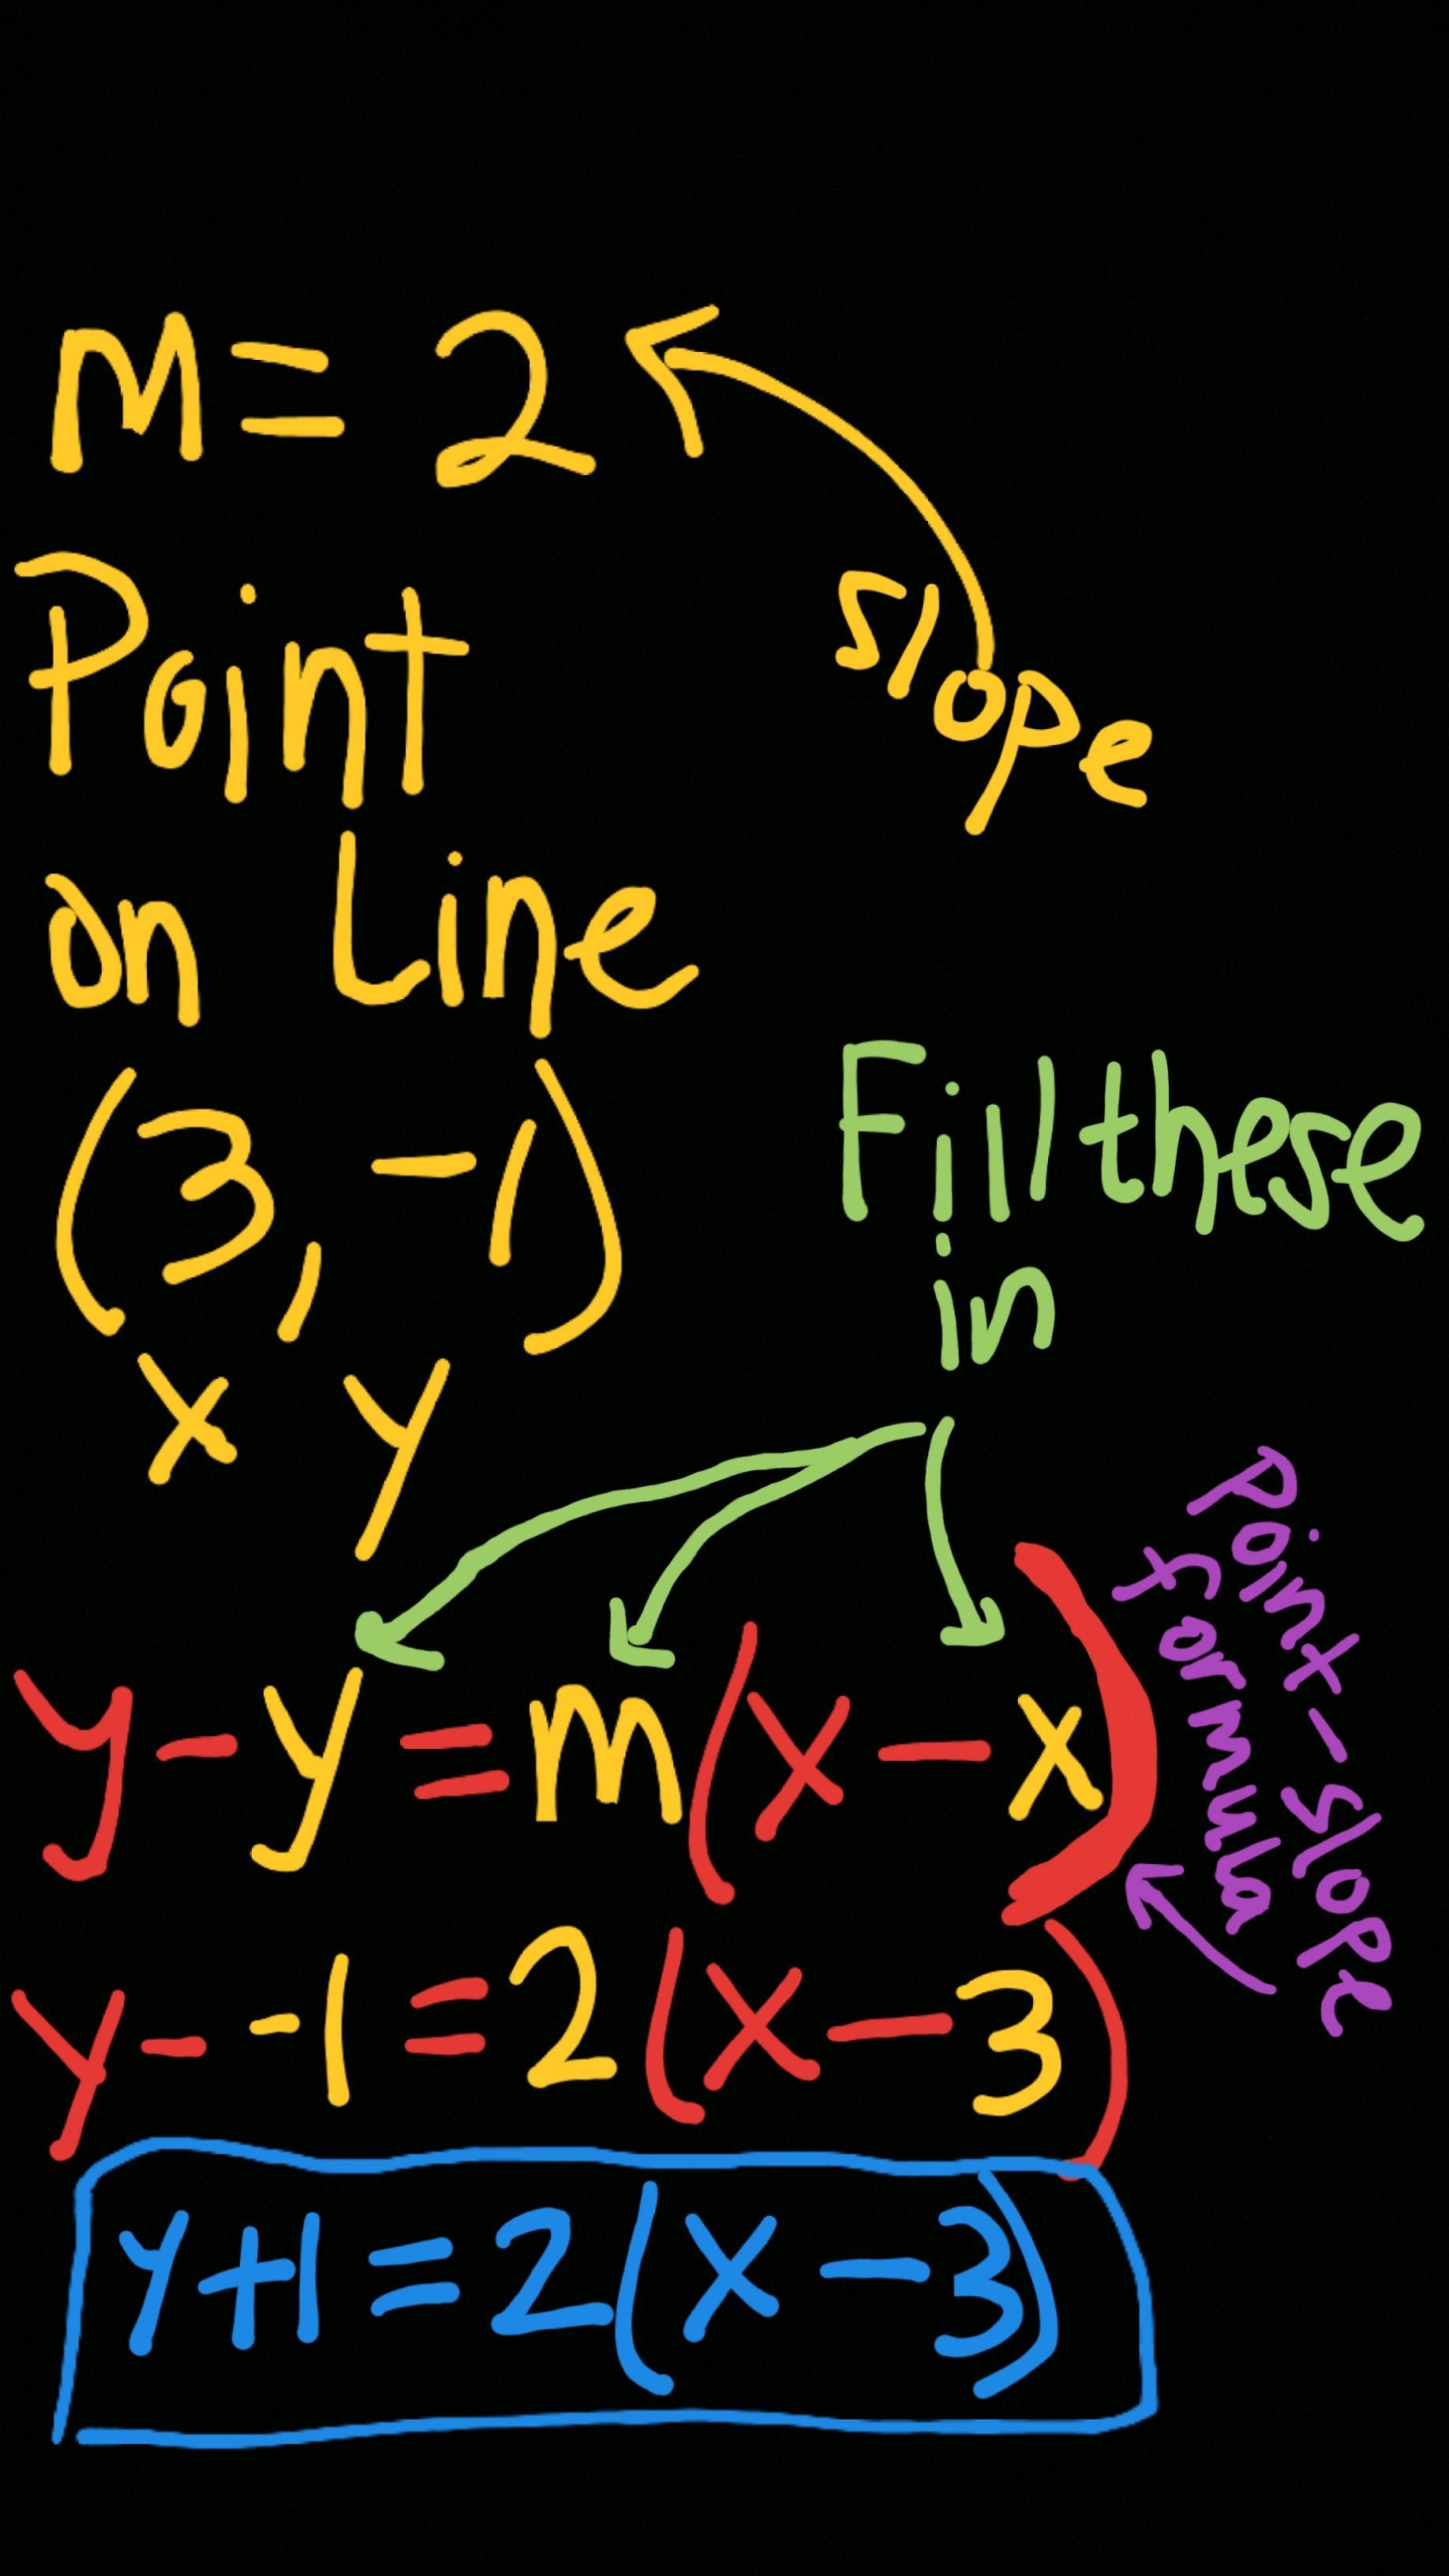 M = 2
Slope
Point
on Line
(3, -1)
x y
Fill these
in
Point-Slope
formula
y - y = m(x - x)
y - -1 = 2(x - 3)
y+1 = 2(x - 3)